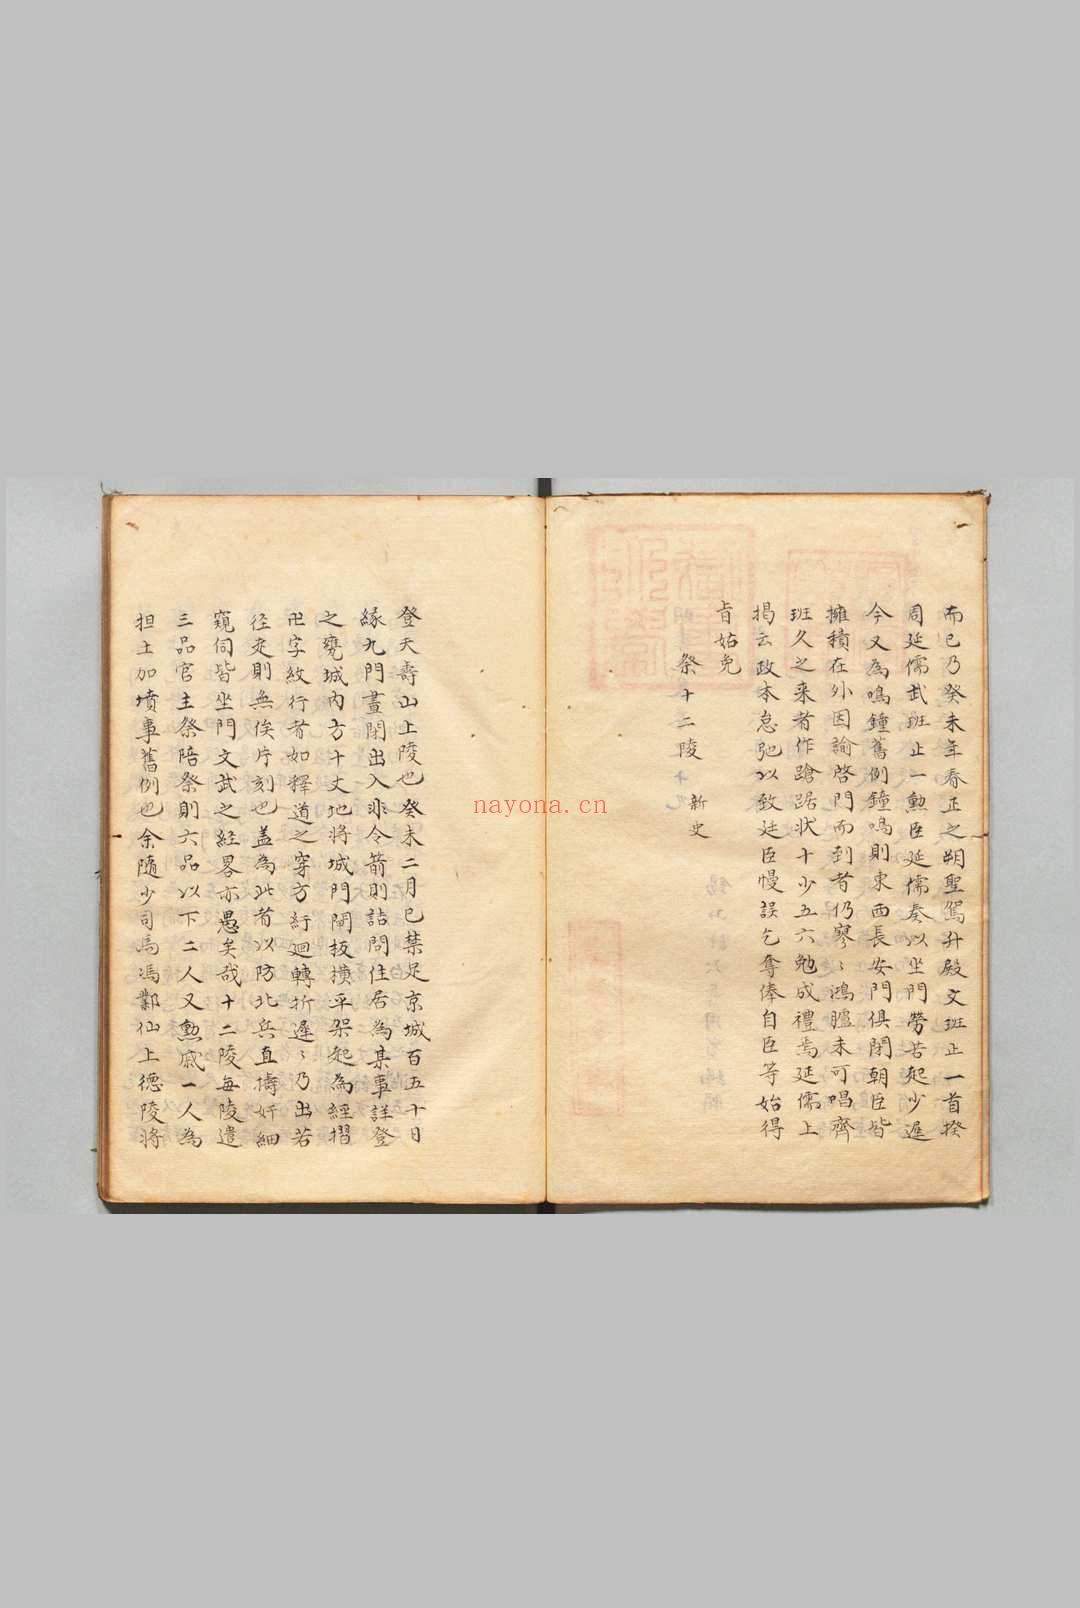 而已乃癸未年春正之朔聖駕升殿文班止一首揆
周延儒武班止一勲臣延儒奏以坐門勞苦起少遲
今又為鳴鐘舊例鐘鳴則東西長安門俱閉朝臣皆
擁積在外因諭啓門而到者仍寥〻鴻臚未可唱齊
班久之来者作蹌踞状十少五六勉成禮焉延儒上
揭云政本怠弛以致廷臣慢誤乞奪俸自臣等始得
旨姑免
祭十二陵 新史
登天壽山上陵也癸未二月已禁足京城百五十日
緣九門晝閉出入非令箭則詰問住居為某事詳登
之甕城内方十丈地將城門閘板横平架起為經摺
卍字紋行者如釋道之穿方紆迴轉折遲〻乃出若
径走則無俟片刻也盖為此者以防北兵直擣奸細
窺伺皆坐門文武之経畧亦愚矣哉十二陵每陵遣
三品官主祭陪祭則六品以下二人又勲戚一人為
担土加墳事舊例也余隨少司馬馮鄴仙上德陵將
nayona.cn